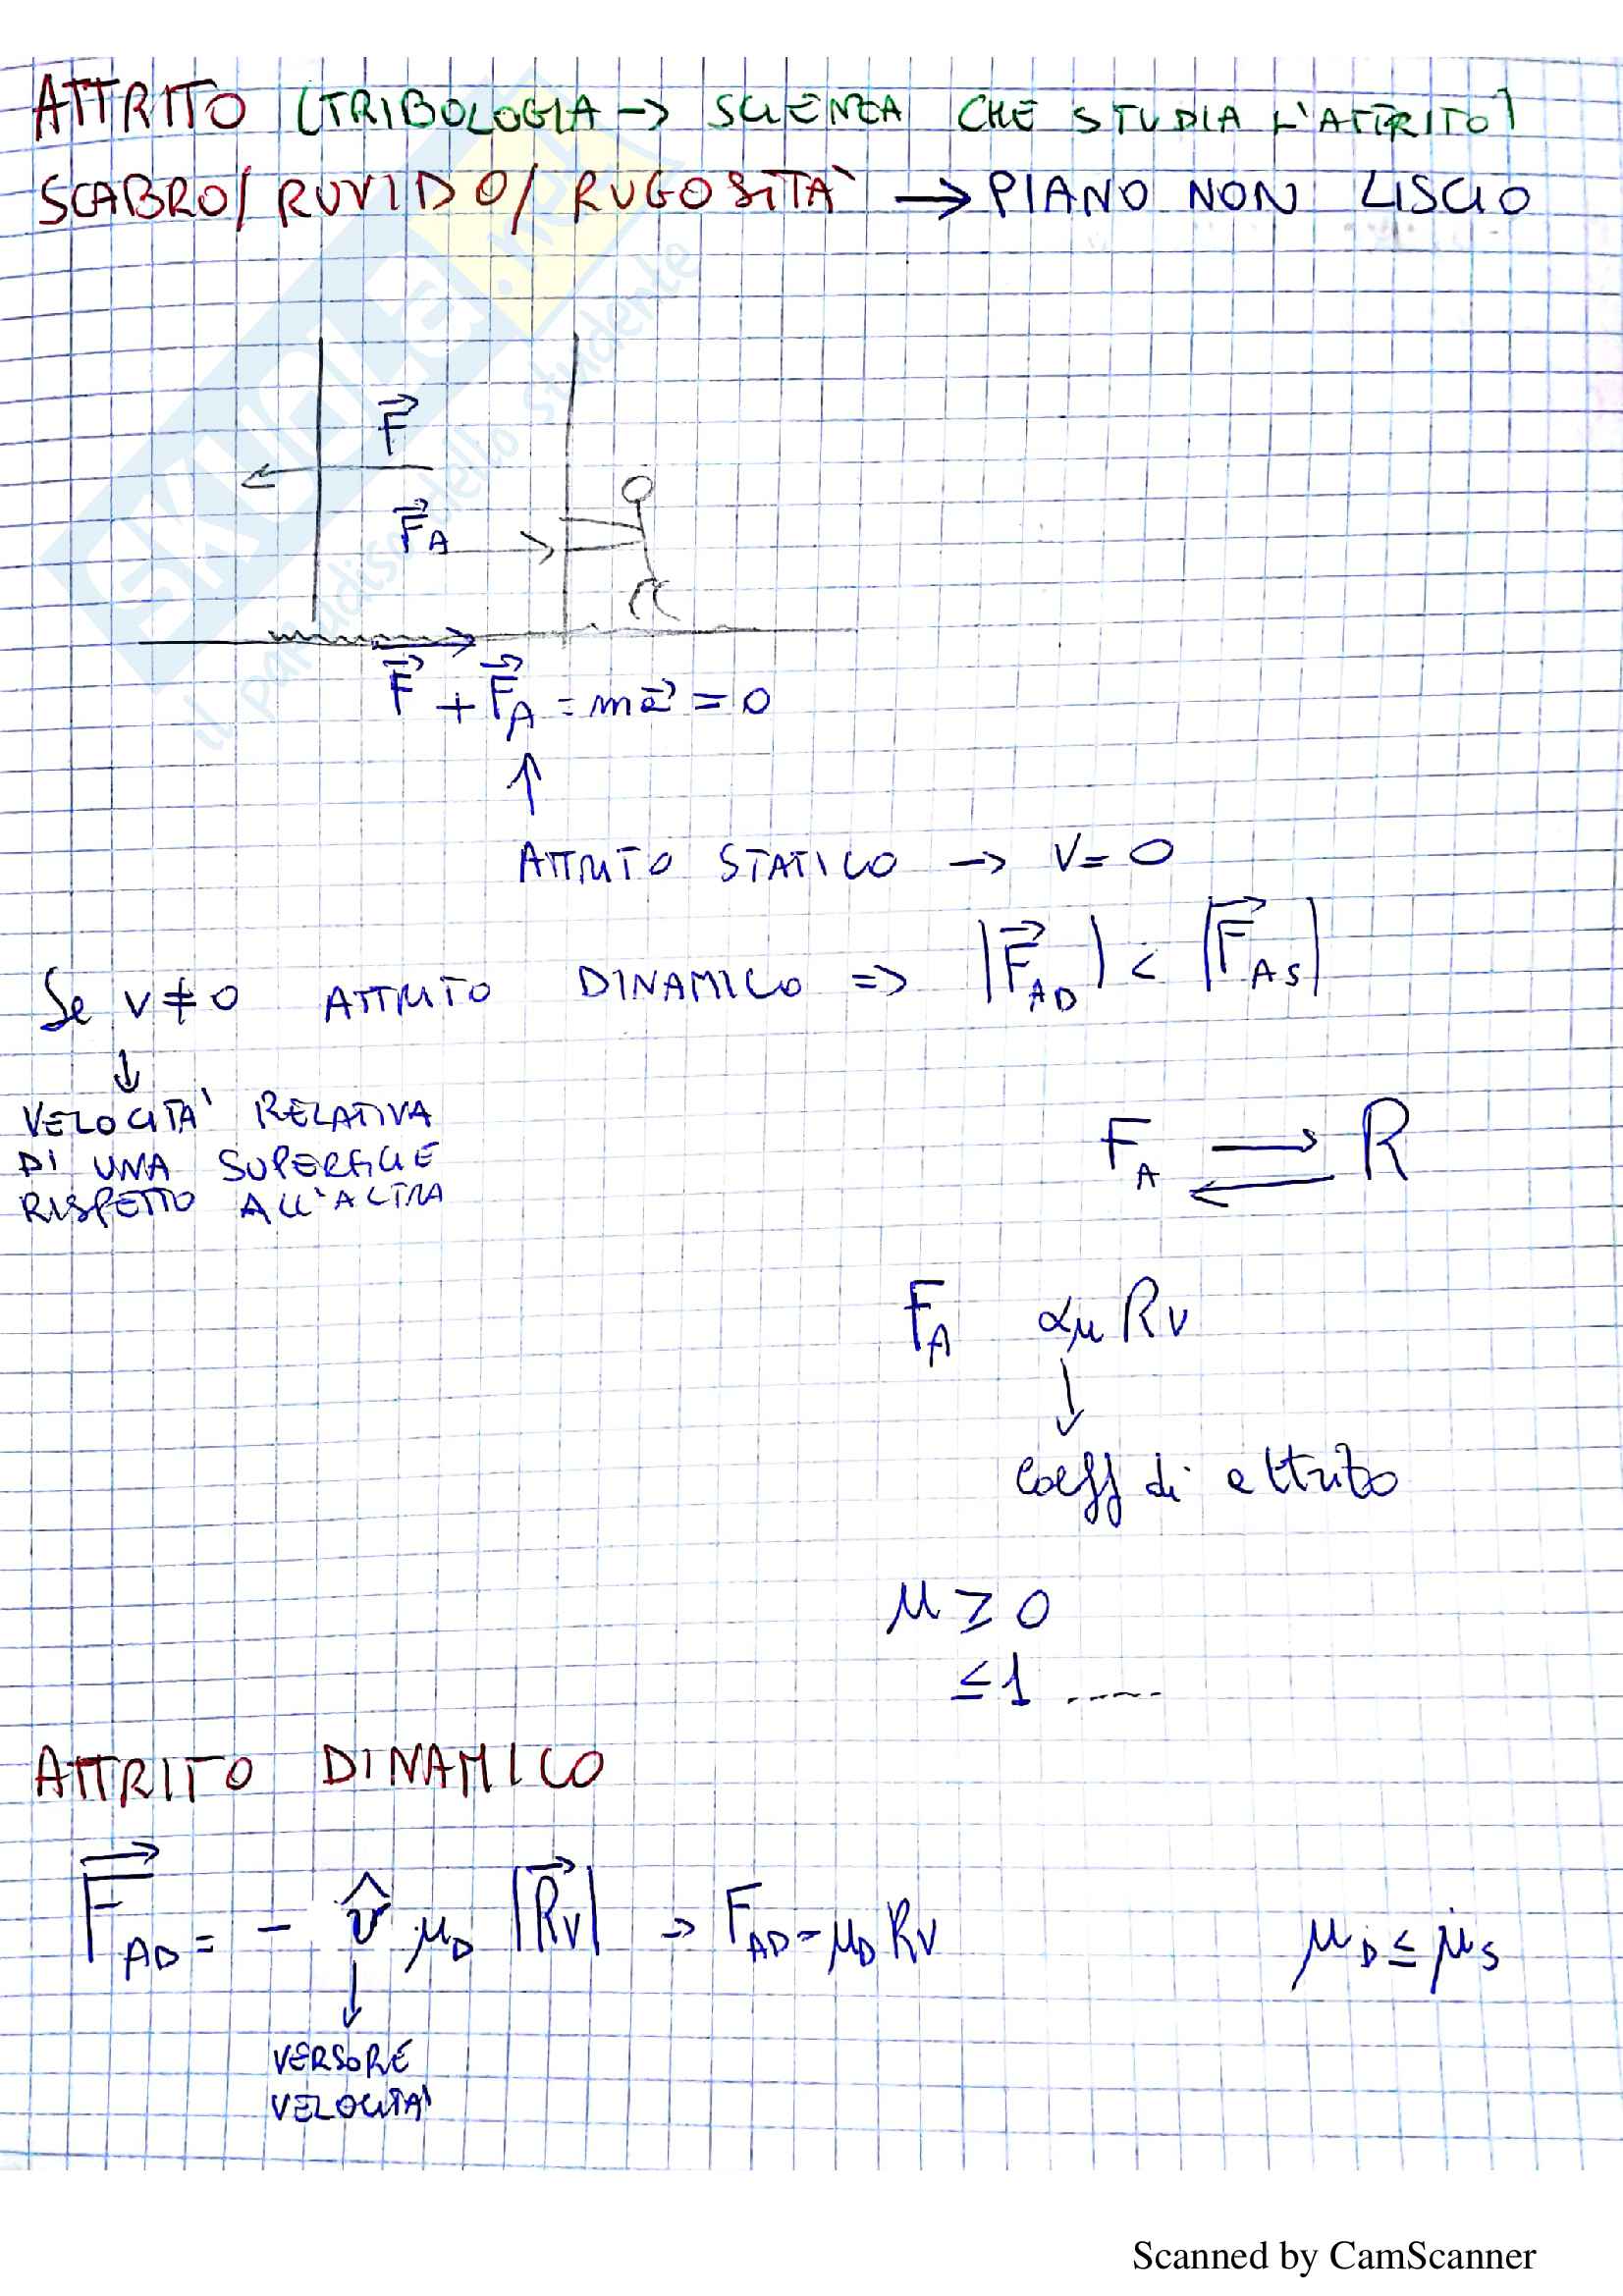 ATTRITO (TRIBOLOGIA → SCIENZA CHE STUDIA L'ATTRITO)
SCABRO/ RUVIDO/ RUGOSITÀ → PIANO NON LISCIO
SKUOLA.net
il paradiso dello studente
F⃗
F⃗_A
F⃗ + F⃗_A = ma⃗ = 0
↑
ATTRITO STATICO → V = 0
Se v ≠ 0 ATTRITO DINAMICO ⇒ |F⃗_AD| < |F⃗_AS|
↓
VELOCITA' RELATIVA
DI UNA SUPERFICIE
RISPETTO ALL'ALTRA
F_A ⇄ R
F_A ∝ μ Rv
↓
coeff di attrito
μ ≥ 0
≤ 1 .....
ATTRITO DINAMICO
F⃗_AD = - v̂ μ_D |R⃗v| → F_AD = μ_D Rv μ_D ≤ μ_S
↓
VERSORE
VELOCITA'
Scanned by CamScanner